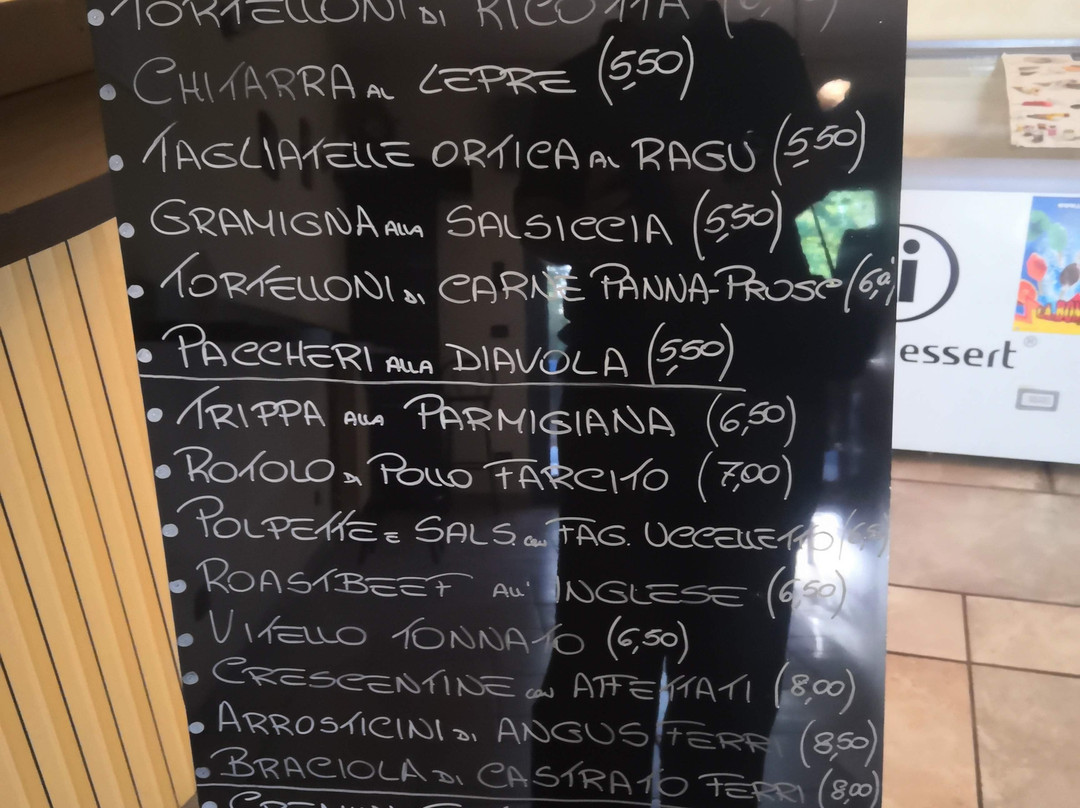 • TORTELLONI DI RICOTTA
• CHITARRA AL LEPRE (5,50)
• TAGLIATELLE ORTICA AL RAGÙ (5,50)
• GRAMIGNA ALLA SALSICCIA (5,50)
• TORTELLONI DI CARNE PANNA-PROSC (6,0
• PACCHERI ALLA DIAVOLA (5,50)
• TRIPPA ALLA PARMIGIANA (6,50)
• ROTOLO DI POLLO FARCITO (7,00)
• POLPETTE E SALS. CON FAG. UCCELLETTO
• ROASTBEEF ALL' INGLESE (6,50)
• VITELLO TONNATO (6,50)
• CRESCENTINE CON AFFETTATI (8,00)
• ARROSTICINI DI ANGUS FERRI (8,50)
• BRACIOLA DI CASTRATO FERRI (8,00)
i
essert®